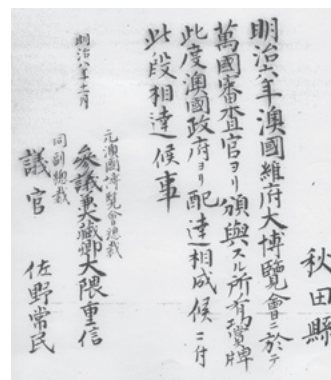 秋田縣
明治六年澳國維府大博覽會ニ於テ
萬國審査官ヨリ頒與スル所有功賞牌
此度澳國政府ヨリ配達相成候ニ付
此段相達候事
明治八年十二月
元澳國博覽會總裁
參議兼大藏卿大隈重信
同副總裁
議官 佐野常民